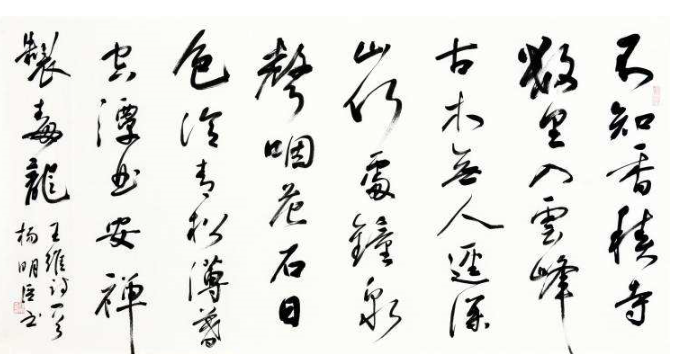 不知香積寺
數里入雲峰
古木無人逕深
山何處鐘泉
聲咽危石日
色冷青松薄暮
空潭曲安禪
製毒龍
王維詩一首
楊明臣书